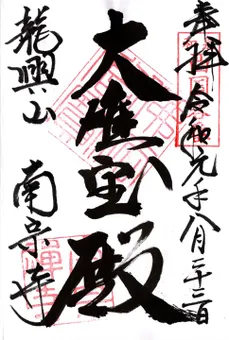 奉拝
令和元年八月二十三日
大雄宝殿
龍興山
南宗寺